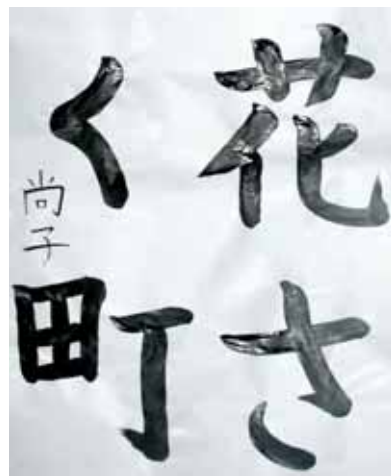 花さ
く町
尚子